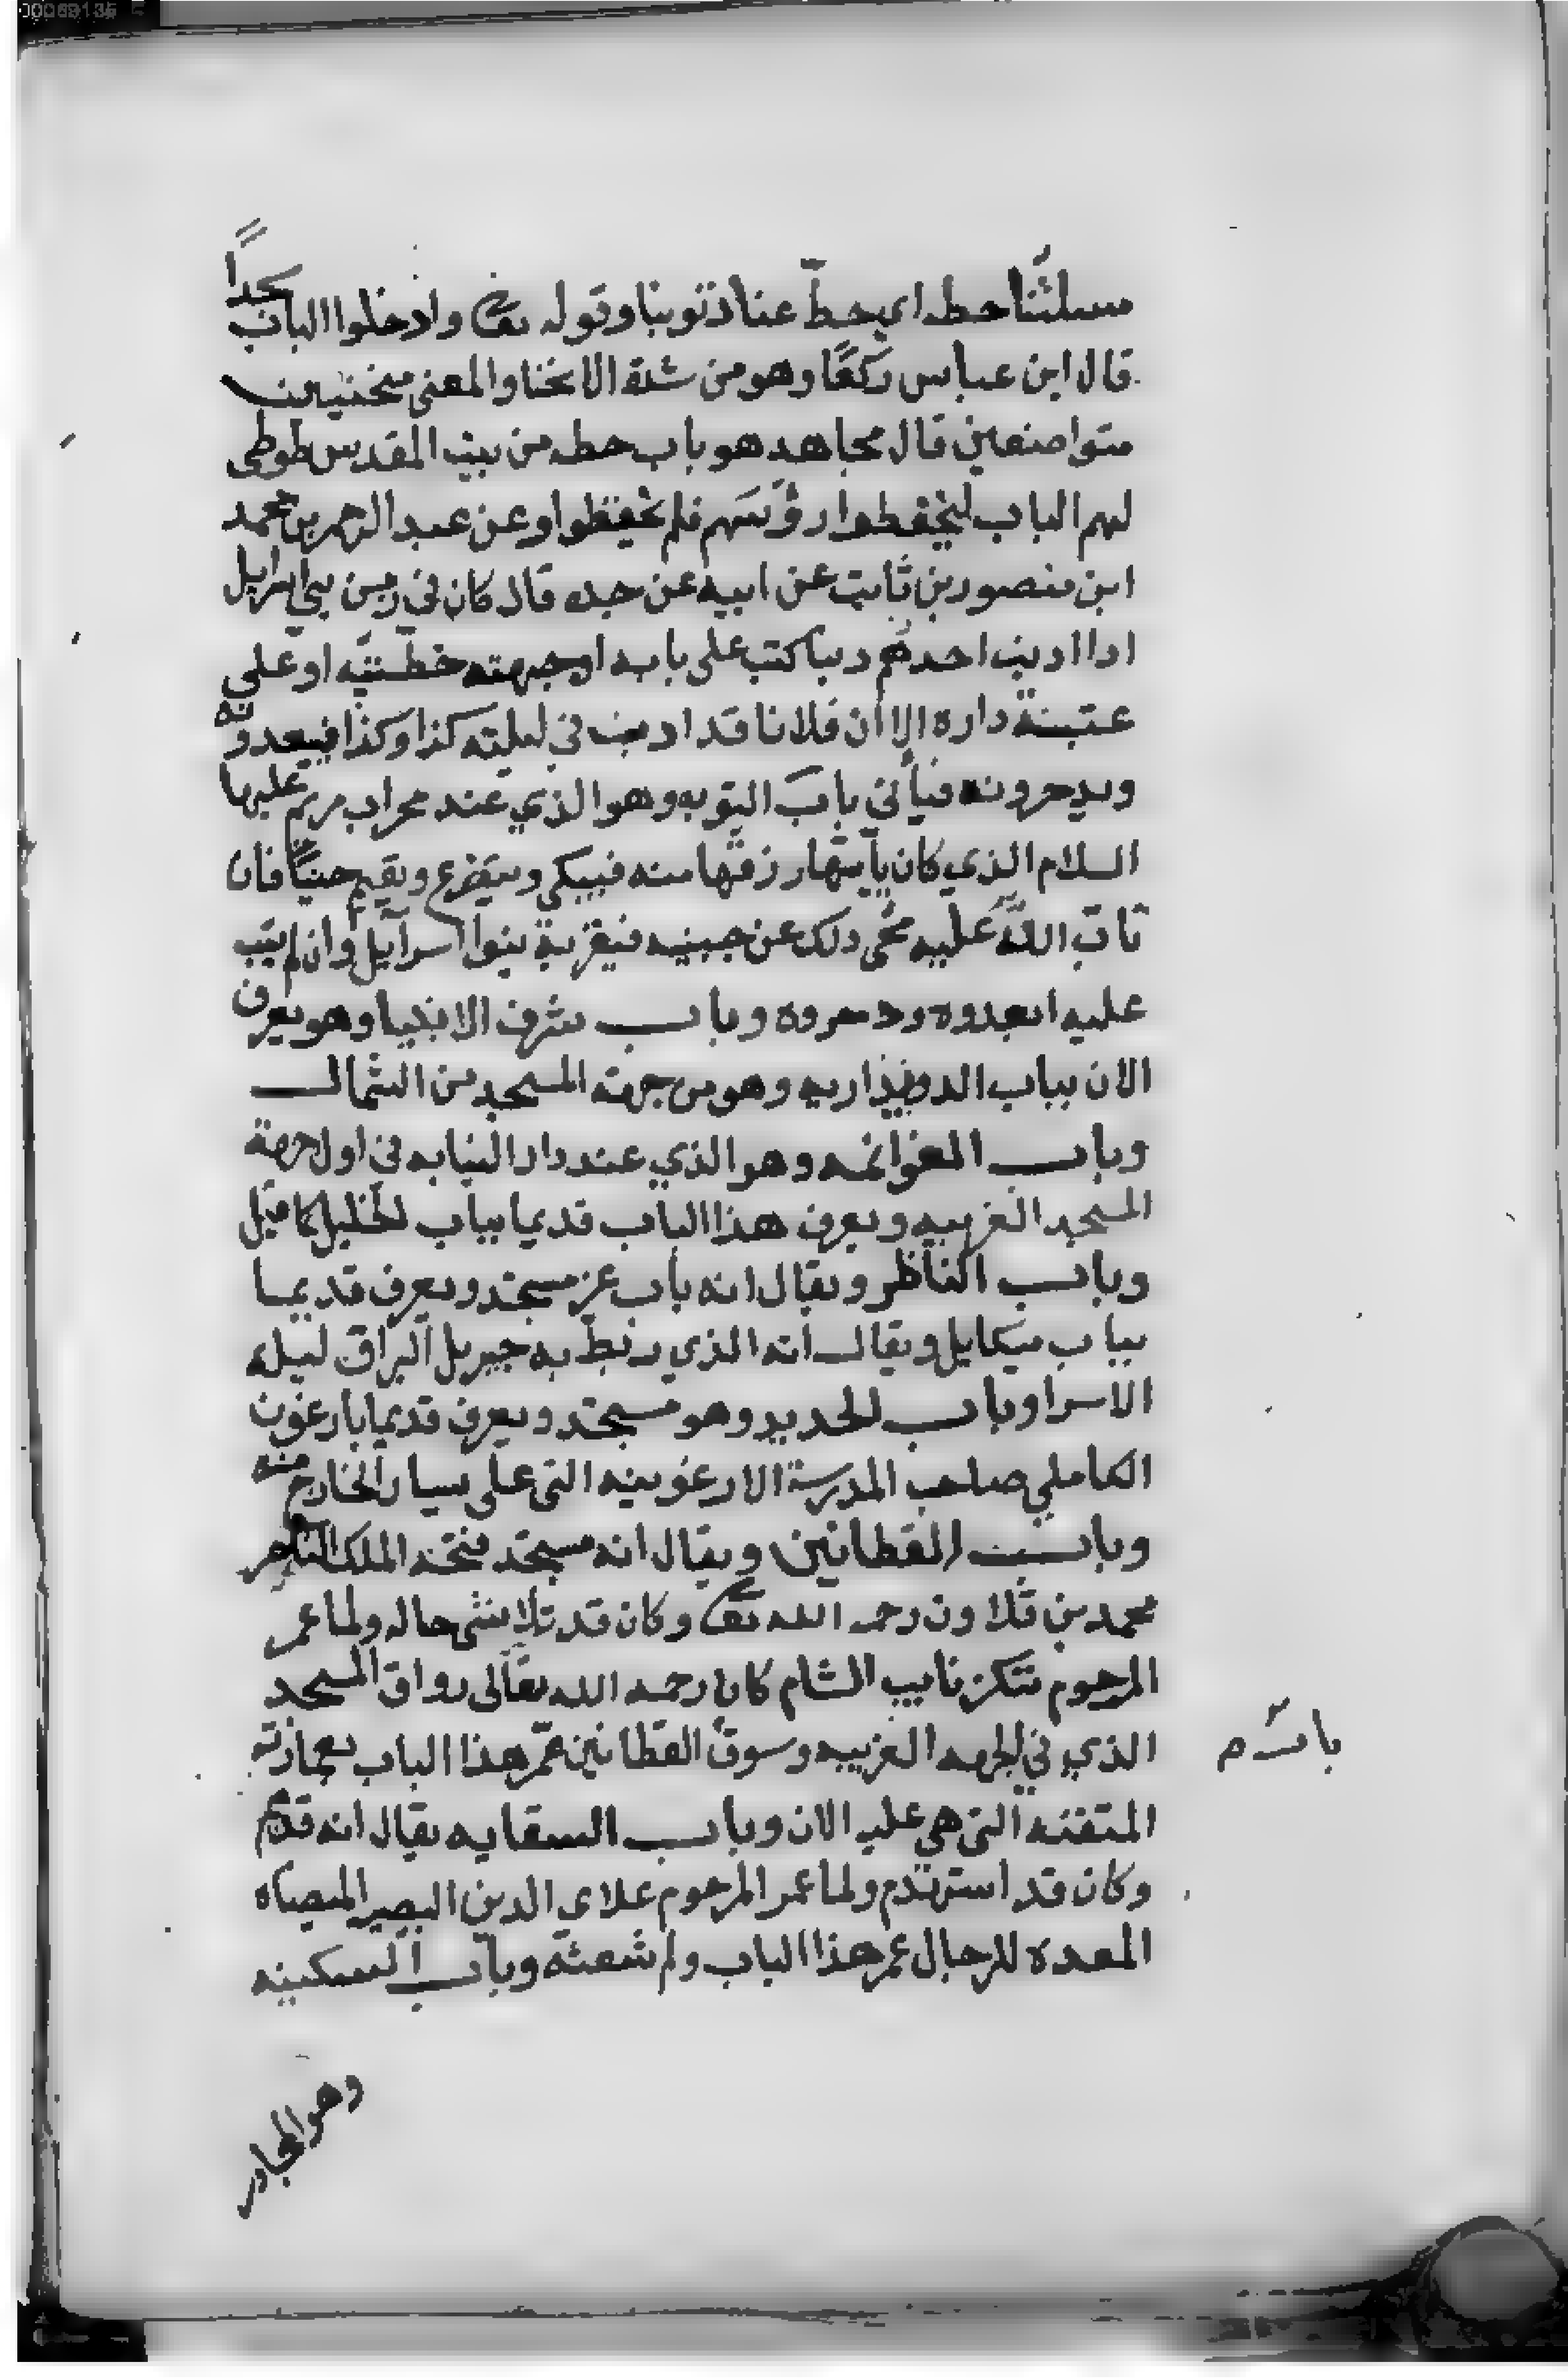 مسلتنا حطه اي حطّ عنا ذنوبنا وقوله تعالى وادخلوا الباب سجدا
قال ابن عباس ركعًا وهو من شدة الانحنا والمعنى منحنيين
متواضعين قال مجاهد هو باب حطه من بيت المقدس طوطى
لهم الباب ليخفظوا رؤسهم فلم يخفظوا وعن عبد الرحمن بن محمد
ابن منصور بن ثابت عن ابيه عن جده قال كان في زمن بني اسرايل
اذا اذنب احدهم ذنبا كتب على بابه او جبهته خطيئته او على
عتبة داره الا ان فلانا قد اذنب في ليلته كذا وكذا فيبعدونه
ويدحرونه فيأتي باب التوبه وهو الذي عند محراب مريم عليها
السلام الذي كان يأيتها رزقها منه فيبكي ويتضرع ويقيم حينًا فان
تاب الله عليه محى ذلك عن جبينه فيقربة بنوا اسرآيل وان لم يتب
عليه ابعدوه ودحروه وباب شرف الانبيا وهو يعرف
الان بباب الدويداريه وهو من جهة المسجد من الشمال
وباب الغوانمه وهو الذي عند دار النيابه في اول جهة
المسجد الغربيه ويعرف هذا الباب قديما بباب الخليل كما قيل
وباب الناظر ويقال انه باب عز مستجد ويعرف قديما
بباب ميكايل ويقال انه الذي ربط به جبريل البراق ليله
الاسرا وباب الحديد وهو مستجد ويعرف قديما بارغون
الكاملي صاحب المدرسة الارغونيه التى على يسار الخارج منه
وباب القطانين ويقال انه مستجد فتحه الملك الناصر
محمد بن قلاون رحمه الله تعالى وكان قد تلاشى حاله ولما عمر
المرحوم تنكز نايب الشام كان رحمه الله تعالى رواق المسجد
الذي في الجهه الغربيه وسوق القطانين عمّر هذا الباب بعمارته
المتقنه التى هي عليه الان وباب السقايه يقال انه قديم
وكان قد استهدم ولما عمر المرحوم علاي الدين البصير الميضاه
المعده للرجال عمر هذا الباب ولم شعثه وباب السكينه
وهو المجاور